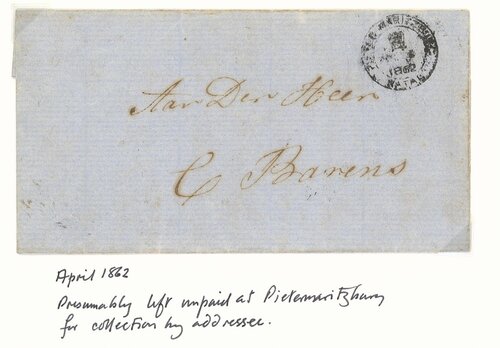 PIETERMARITZBURG
1862
NATAL
Aan Den Heer
C Barens
April 1862
Presumably left unpaid at Pietermaritzburg
for collection by addressee.